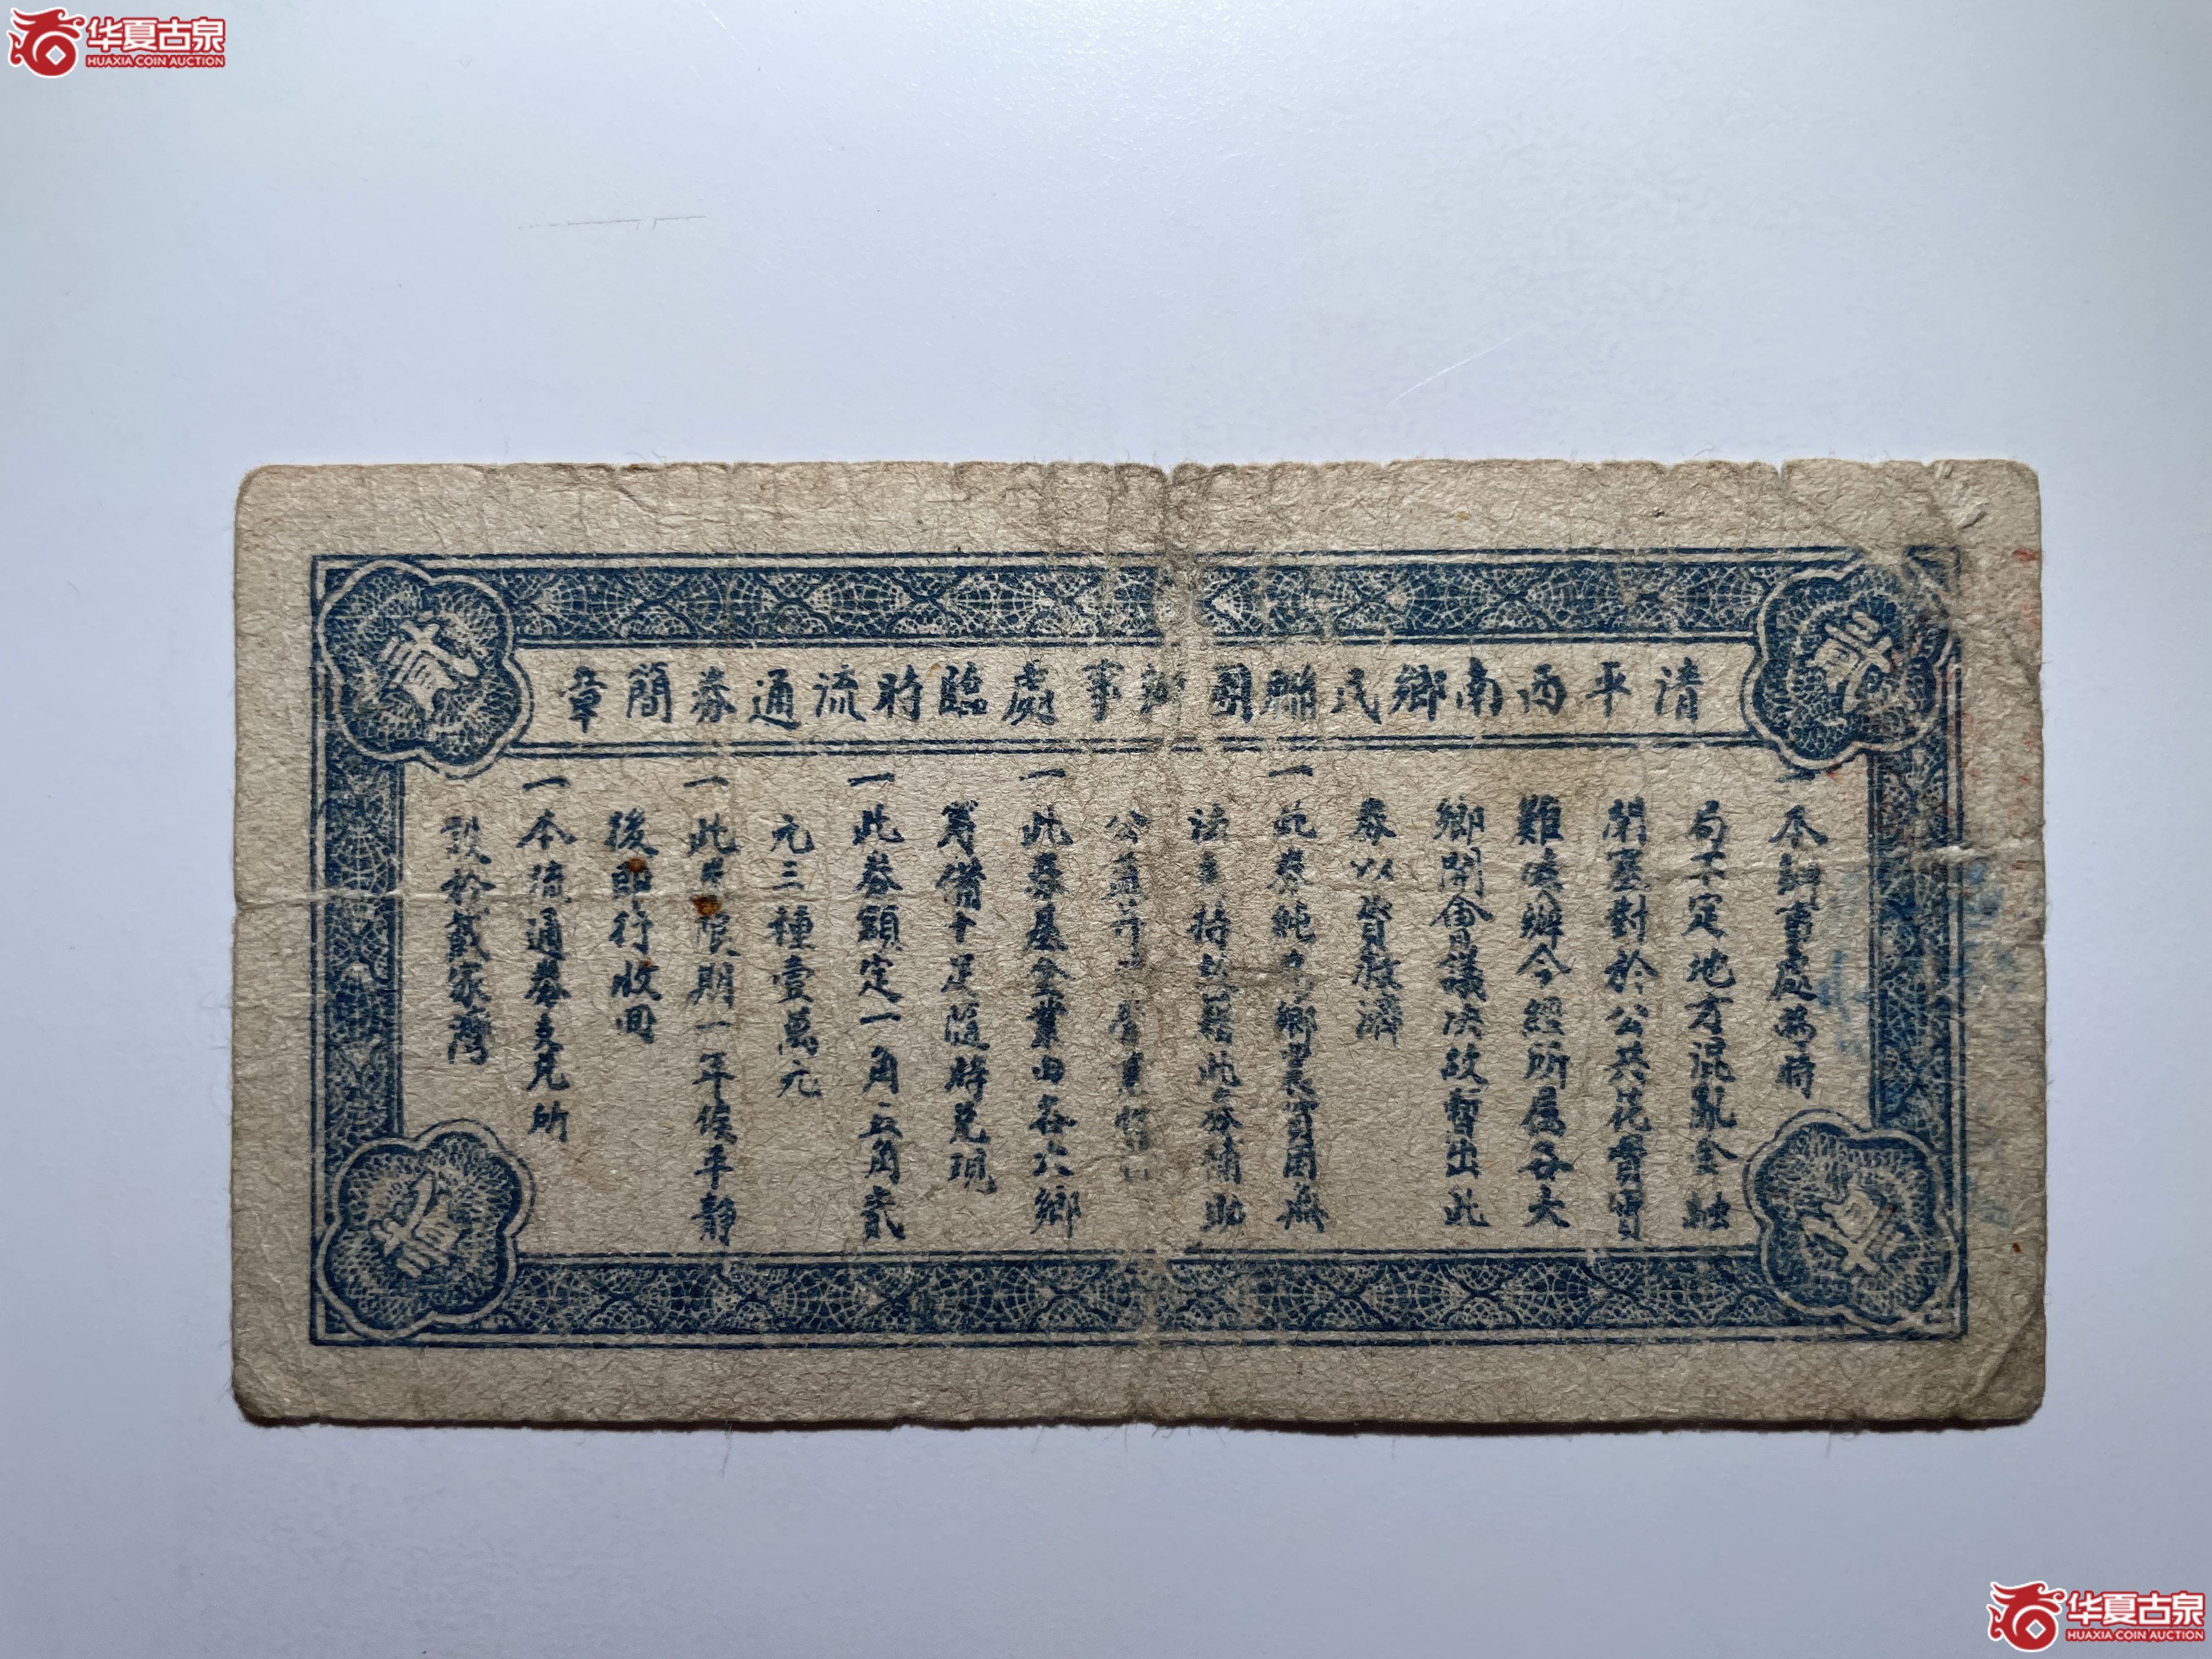 华夏古泉
HUAXIA COIN AUCTION
清平西南鄉民聯團辦事處臨時流通券簡章
貳
貳
一本辦事處為時
局不定地方混亂金融
閉塞對於公共花費實
難喚辦今經所屬各大
鄉開會議決故暫出此
券以資救濟
一此券純為鄉農實用無
法 持 藉此券補助
公益
一此券基金業由各大鄉
籌備十足隨時兌現
一此券額定一角五角貳
元三種壹萬元
一此 限期一年俟平靜
後即行收回
一本流通券支兌所
設於戴家灣
华夏古泉
HUAXIA COIN AUCTION